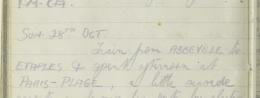 Sun. 28TH OCT.
Train from ABBEVILLE to
ETAPLES & spent afternoon at
PARIS-PLAGE, a little seaside